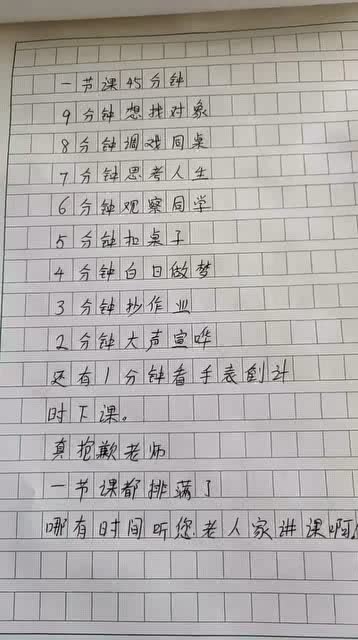 一节课45分钟
9分钟想找对象
8分钟调戏同桌
7分钟思考人生
6分钟观察同学
5分钟扣桌子
4分钟白日做梦
3分钟抄作业
2分钟大声宣哗
还有1分钟看手表倒计
时下课。
真抱歉老师
一节课都排满了
哪有时间听您老人家讲课啊